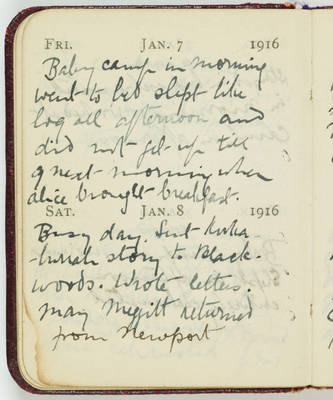 FRI. JAN. 7 1916
Baby came in morning
went to bed slept like
log all afternoon and
did not get up till
9 next morning when
alice brought breakfast.
SAT. JAN. 8 1916
Busy day. Sent
story to Black-
woods. Wrote letters.
May returned
from Newport